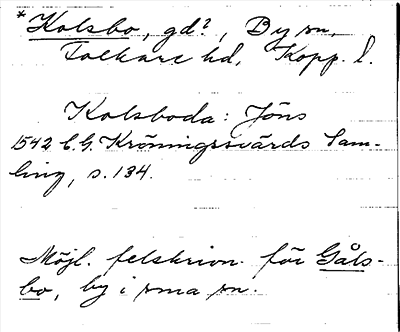 * Kolsbo, gd?, By sn,
Folkare hd, Kopp. l.
Kolsboda: Jöns
1542 C.G. Kröningssvärds Sam-
ling, s. 134.
Möjl. felskrivn. för Gåls-
bo, by i sma sn.